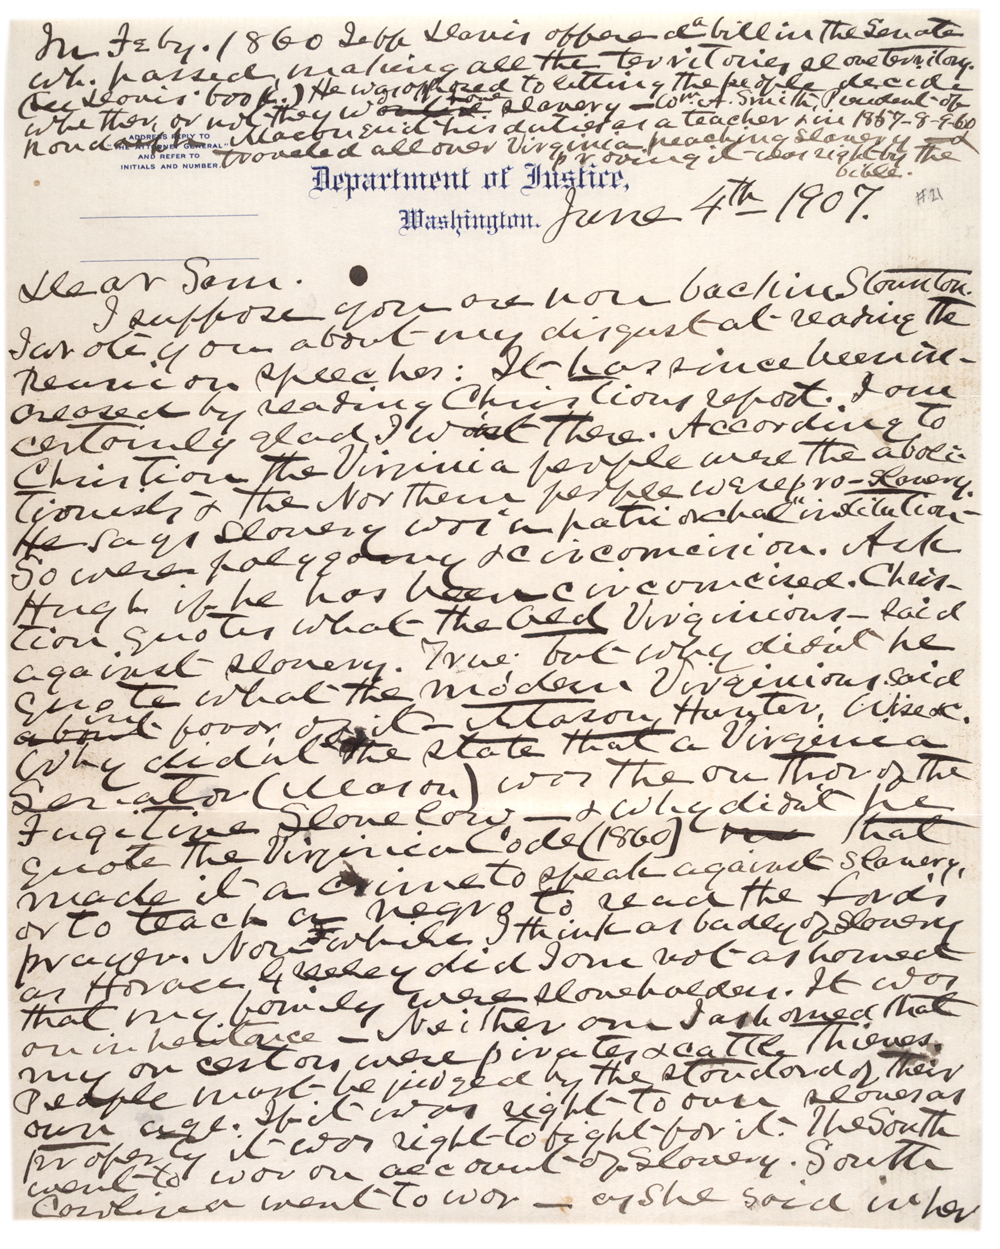 In Feby. 1860 Jeff Davis offered a bill in the Senate
wh. passed, making all the territories slave territory.
(see Davis' book.) He was opposed to letting the people decide
whether or not they would have slavery — Wm. A. Smith, President of
Randolph Macon quit his duties as a teacher & in 1857-8-9-60
traveled all over Virginia preaching slavery and
proving it was right by the
bible.
ADDRESS REPLY TO
"THE ATTORNEY GENERAL"
AND REFER TO
INITIALS AND NUMBER.
Department of Justice,
Washington.
June 4th 1907.
#21
Dear Sam.
I suppose you are now back in Staunton.
I wrote you about my disgust at reading the
Reunion speeches: It has since been in-
creased by reading Christians report. I am
certainly glad I wasn't there. According to
Christian the Virginia people were the aboli-
tionists & the Northern people were pro-slavery.
He says slavery was "a patriarchal" institution -
So were polygamy & circumcision. Ask
Hugh if he has been circumcised. Chris-
tian quotes what the Old Virginians - said
against slavery. True; but why didn't he
quote what the modern Virginians said
about in favor of it - Mason, Hunter, Wise &c.
Why didn't he state that a Virginia
Senator (Mason) was the author of the
Fugitive Slave law - & why didn't he
quote the Virginia Code (1860) that
made it a crime to speak against slavery,
or to teach a negro to read the Lord's
prayer. Now while I think as badly of slavery
as Horace Greeley did I am not ashamed
that my family were slaveholders. It was
our inheritance - Neither am I ashamed that
my ancestors were pirates & cattle thieves.
People must be judged by the standard of their
own age. If it was right to own slaves as
property it was right to fight for it. The South
went to war on account of slavery. South
Carolina went to war - as she said in her